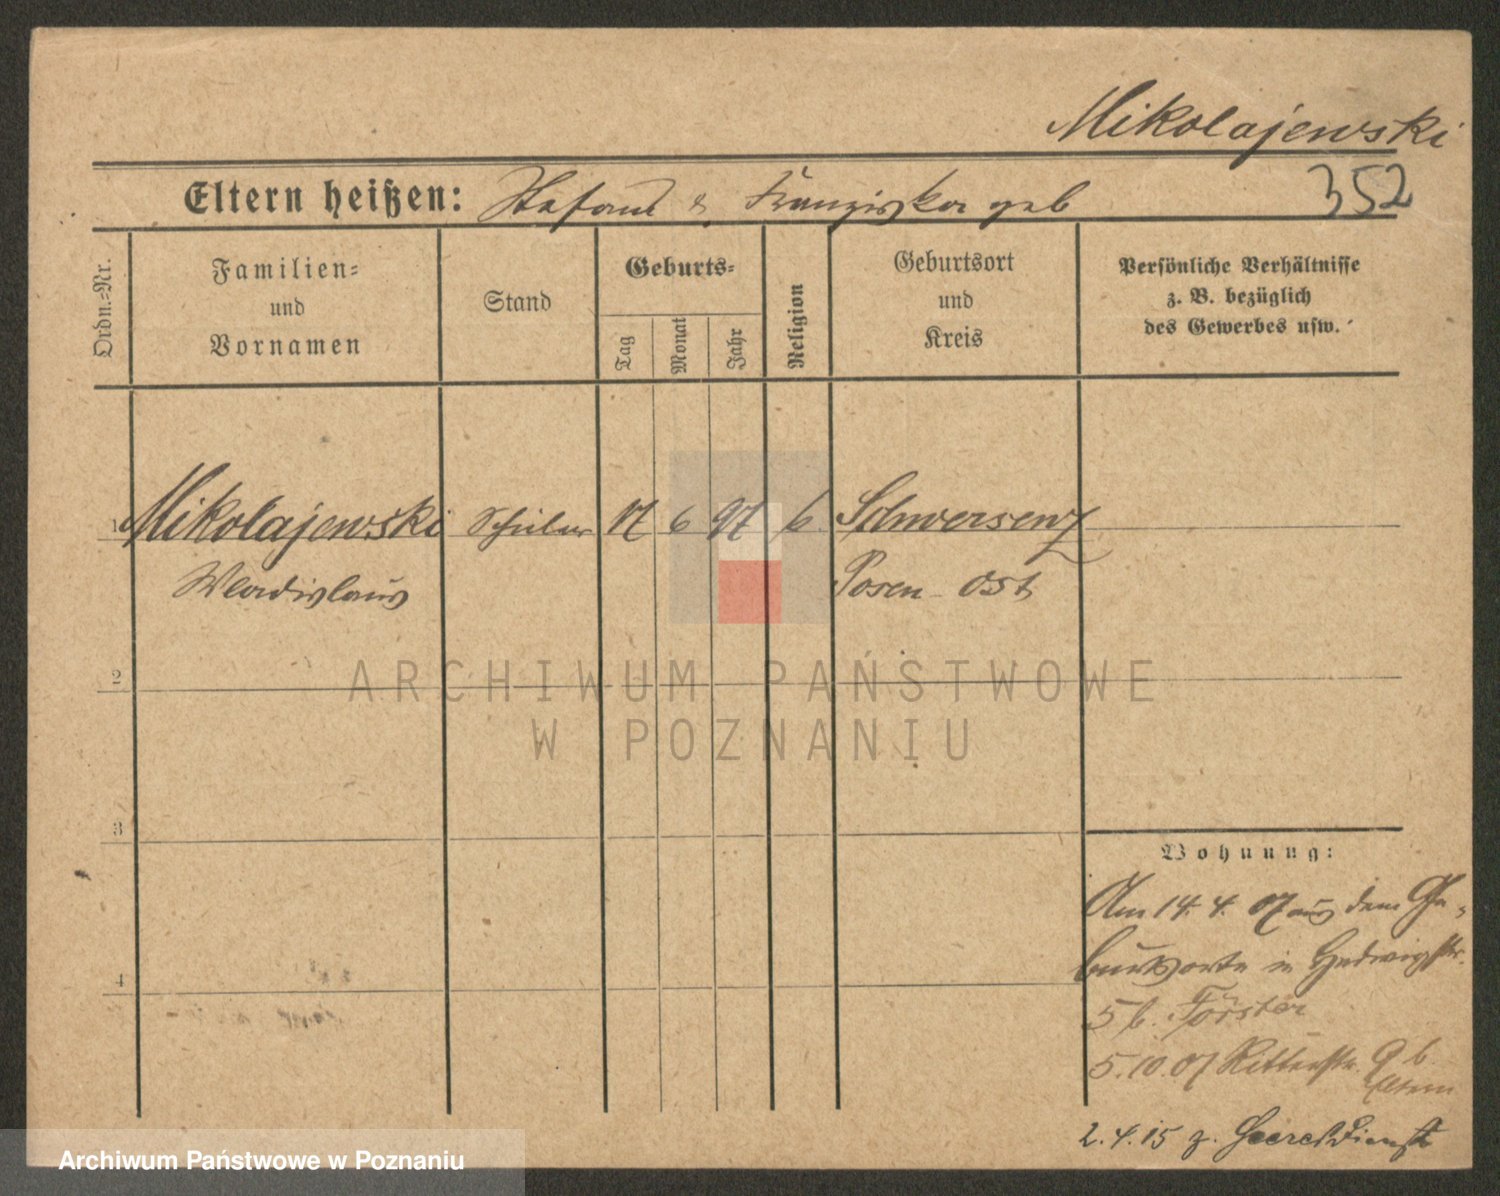 Mikolajewski
352
Eltern heißen: Stefan & Franziska geb
Ordn.-Nr.
Familien-
und
Vornamen
Stand
Geburts-
Tag
Monat
Jahr
Religion
Geburtsort
und
Kreis
Persönliche Verhältnisse
z. B. bezüglich
des Gewerbes usw.
1 Mikolajewski Schüler 17 6 97 k Schwersenz
Wladislaus Posen Ost
2
ARCHIWUM PAŃSTWOWE
W POZNANIU
3
Wohnung:
Am 14. 4. 07 aus dem Ge-
burtsorte in Hedwigstr.
4
5 b. Förster
5.10.07 Ritterstr. 9 b
Eltern
2.4.15 z. Heeresdienst
Archiwum Państwowe w Poznaniu